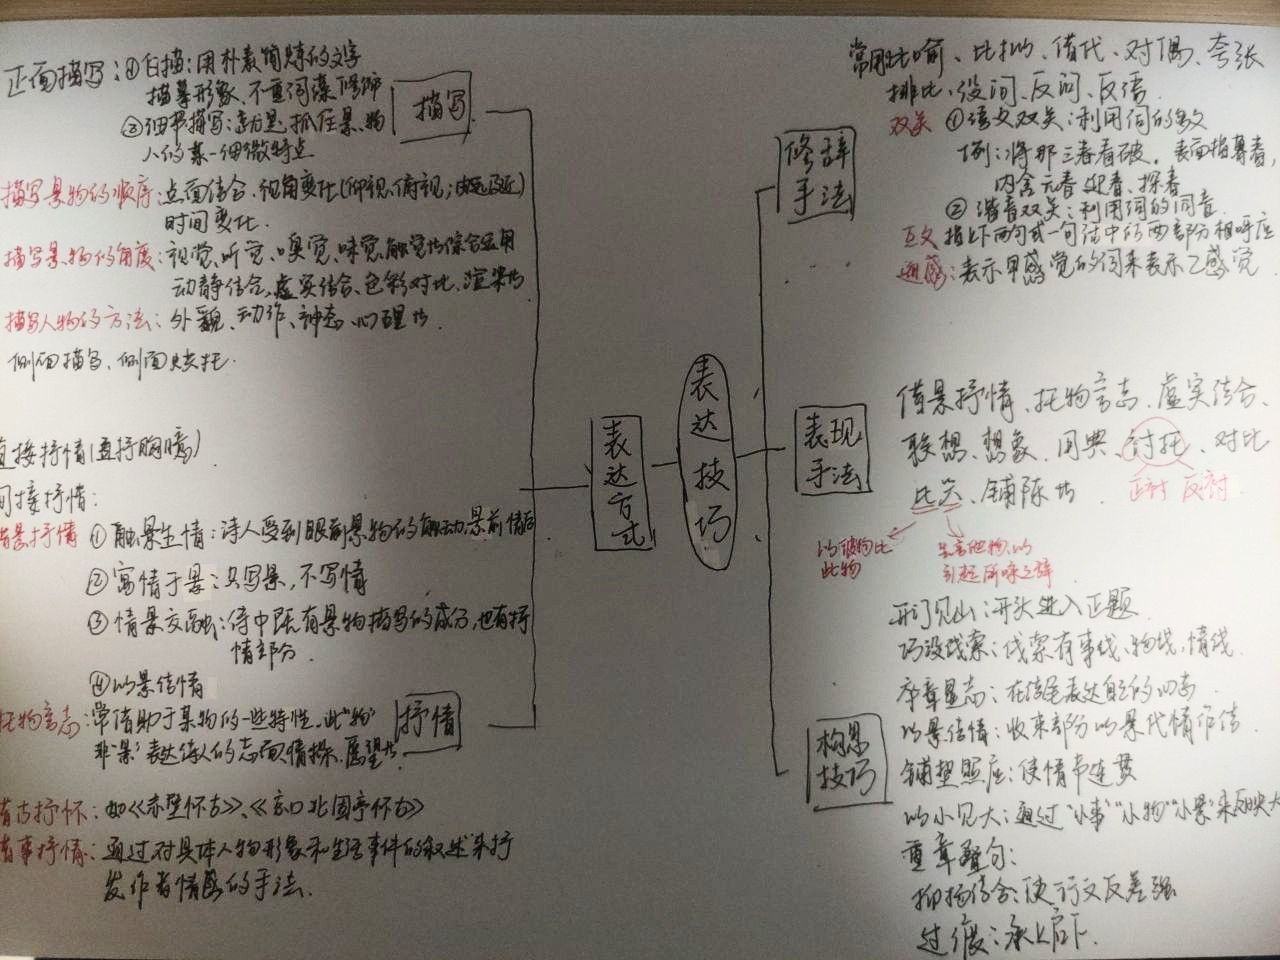 正面描写：①白描：用朴素简炼的文字
描摹形象、不重词藻修饰
②细节描写：就是抓住景、物
人的某一细微特点
描写
描写景物的顺序：点面结合、视角变化(仰视、俯视；由远及近)
时间变化.
描写景物的角度：视觉、听觉、嗅觉、味觉、触觉的综合运用
动静结合、虚实结合、色彩对比、渲染等
描写人物的方法：外貌、动作、神态、心理等.
侧面描写、侧面烘托.
直接抒情(直抒胸臆)
间接抒情：
借景抒情 ①触景生情：诗人受到眼前景物的触动.景前情后
②寓情于景：只写景，不写情
③情景交融：诗中既有景物描写的成分，也有抒
情部分.
④以景结情
抒情
托物言志：常借助于某物的一些特性.此"物"
非"景"表达诗人的志向情操、愿望等
借古抒怀：如《赤壁怀古》、《京口北固亭怀古》
借事抒情：通过对具体人物形象和生活事件的叙述来抒
发作者情感的手法.
表达方式
表达技巧
修辞手法
常用比喻、比拟、借代、对偶、夸张
排比、设问、反问、反语.
双关 ①语义双关：利用词的多义
例：将那三春看破，表面指暮春，
内含元春、迎春、探春
②谐音双关：利用词的同音.
互文 指上下两句或一句话中的两部分相呼应
通感：表示甲感觉的词来表示乙感觉
表现手法
借景抒情、托物言志、虚实结合、
联想、想象、用典、衬托、对比
比兴、铺陈等.
正衬 反衬
以彼物比
此物
先言他物，以
引起所咏之辞
构思技巧
开门见山：开头进入正题
巧设线索：线索有事线、物线、情线.
卒章显志：在结尾表达自己的心志.
以景结情：收束部分以景代情作结.
铺垫照应：使情节连贯
以小见大：通过"小事""小物""小景"来反映大
重章叠句：
抑扬结合：使行文反差强
过渡：承上启下.